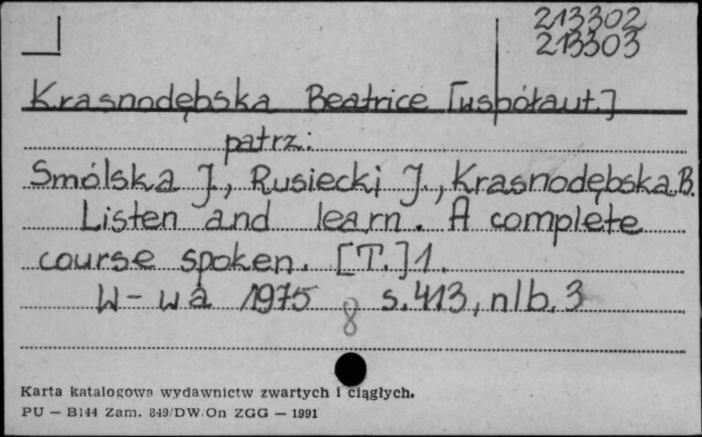 213302
213303
Krasnodębska Beatrice [współaut.]
patrz:
Smólska J., Rusiecki J., Krasnodębska B.
Listen and learn. A complete
course spoken. [T.] 1.
W-wa 1975 s. 413, nlb. 3
8
Karta katalogowa wydawnictw zwartych i ciągłych.
PU — B144 Zam. 849/DW/On ZGG — 1991